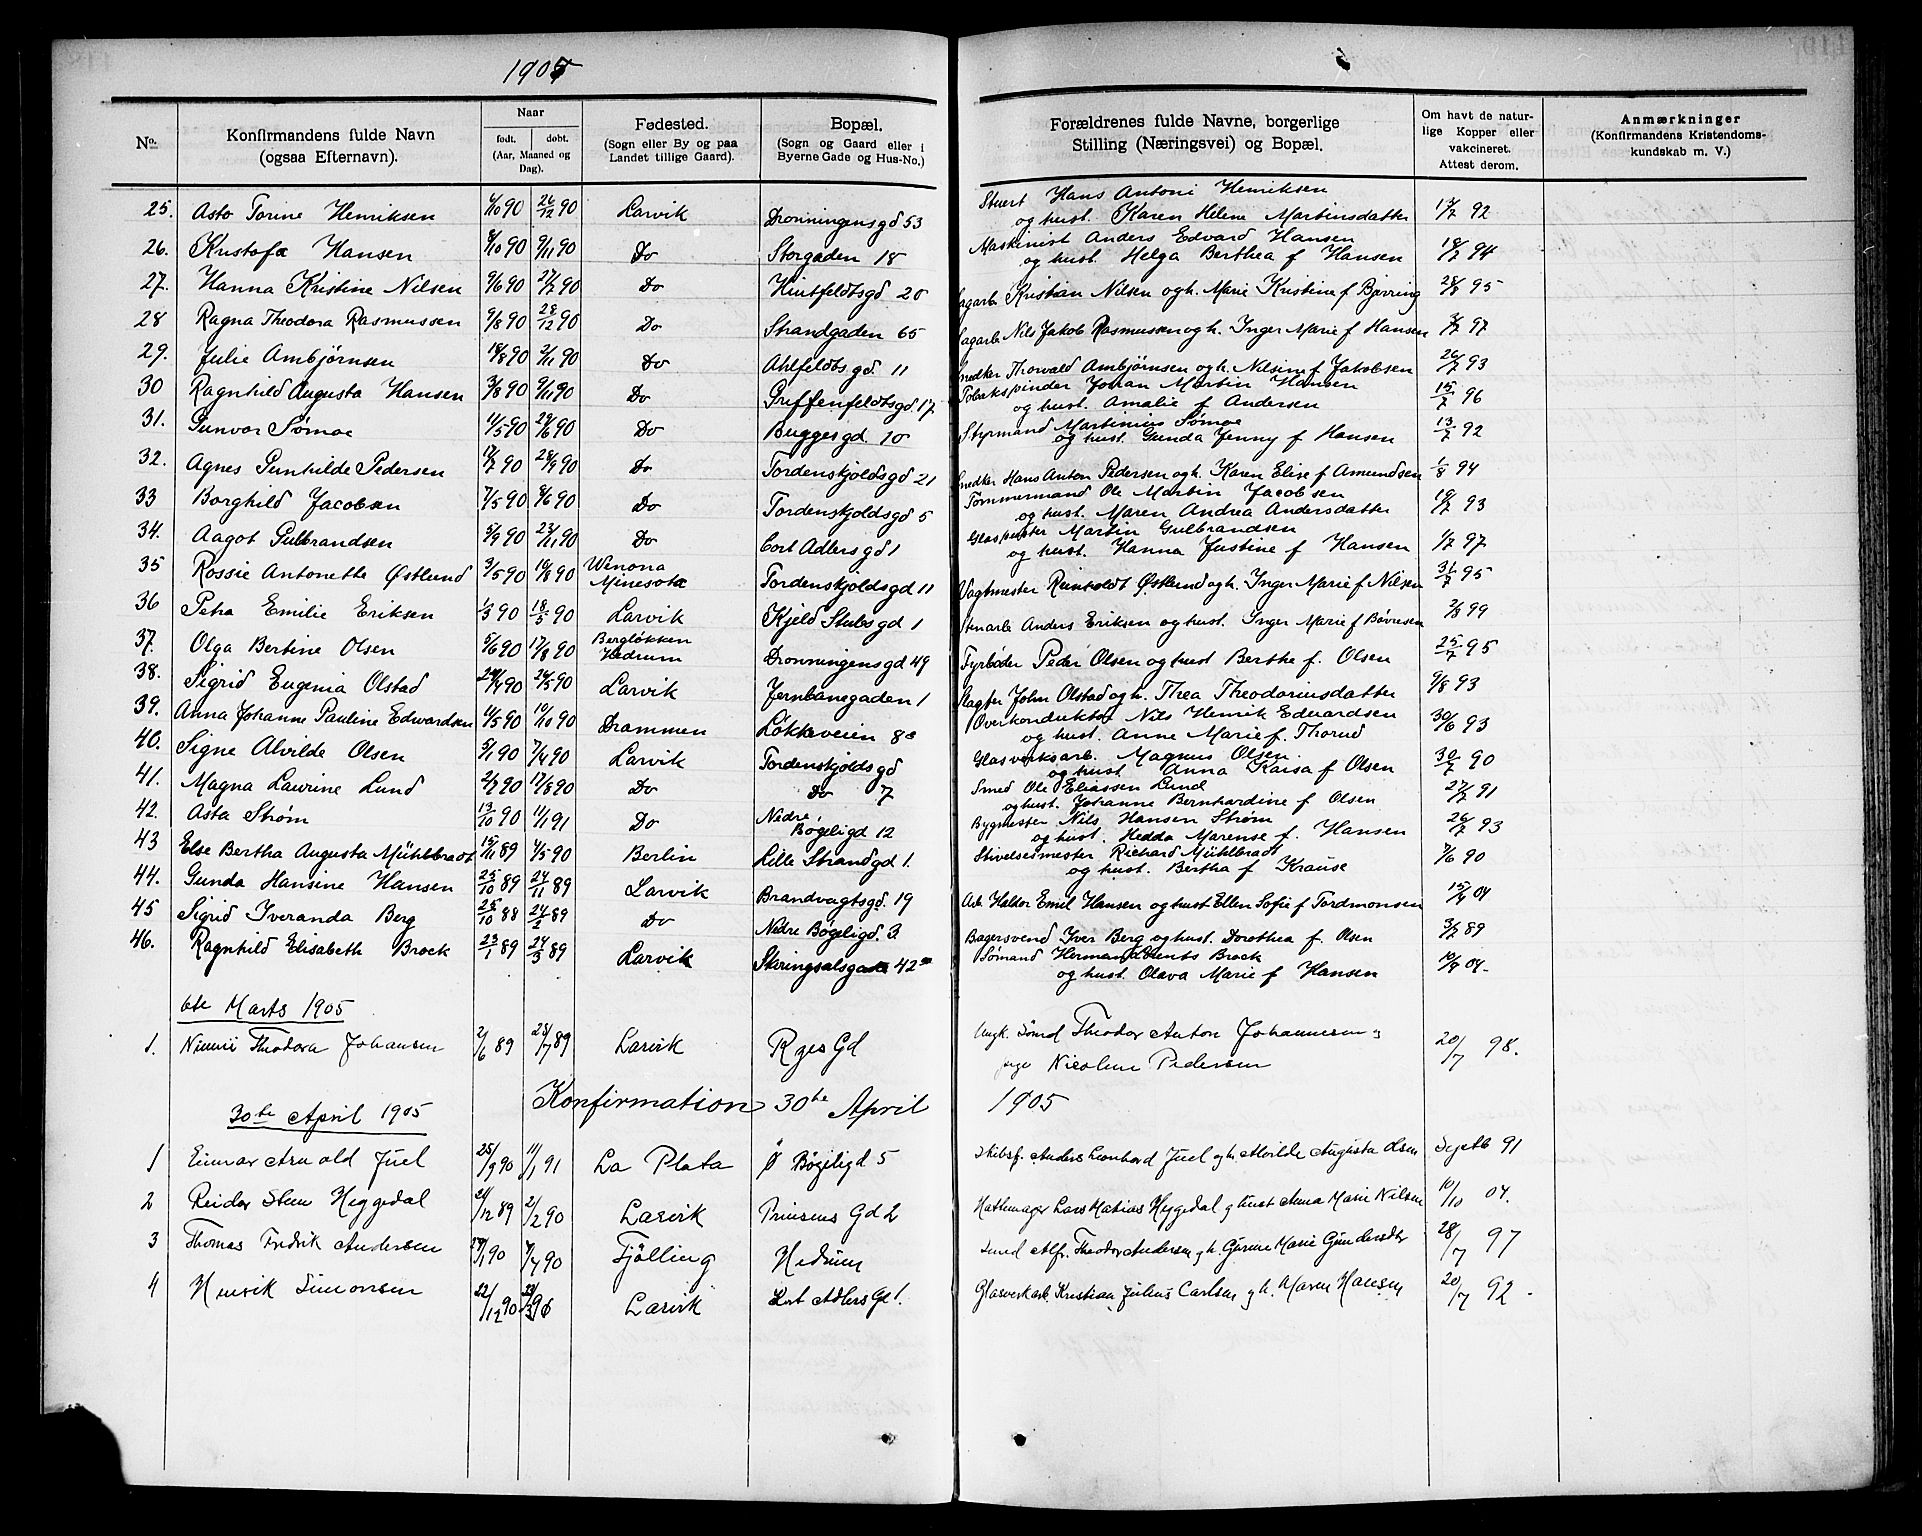 1905
No. Konfirmandens fulde Navn (ogsaa Efternavn). Naar født. døbt. (Aar, Maaned og Dag). Fødested. (Sogn eller By og paa Landet tillige Gaard). Bopæl. (Sogn og Gaard eller i Byerne Gade og Hus-No.) Forældrenes fulde Navne, borgerlige Stilling (Næringsvei) og Bopæl. Om havt de naturlige Kopper eller vakcineret. Attest derom. Anmærkninger (Konfirmandens Kristendomskundskab m. V.)
25. Asto Torine Henriksen 26/12 90 Larvik Dronningensgd 53 Stuert Hans Antoni Henriksen
og hust. Karen Helene Martinsdatter 92
26. Kristofa Hansen 8/10 90 9/11 90 Do Storgaden 18 Maskinist Anders Edvard Hansen
og hust. Helga Berthea f Hansen 94
27. Hanna Kristine Nilsen 9/6 90 27/7 90 Do 20 Kristian Nilsen og h. Marie Kristine f Bjerring 95
28 Ragna Theodora Rasmussen 9/8 90 28/12 90 Do Strandgaden 65 Nils Jakob Rasmussen og h. Inger Marie f Hansen 97
29. Julie Ambjørnsen 18/8 90 2/11 90 Do Ahlfeldtsgd 11 Snedker Thorvald Ambjørnsen og h. f Jakobsen 26/7 93
30 Ragnhild Augusta Hansen 3/8 90 9/11 90 Do Griffenfeldtsgd. 17 Tobakspinder Johan Martin Hansen
og hust. Amalie f Andersen 15/7 96
31. Gunvor Sømoe 4/5 90 29/6 90 Do Buggesgd. 10 Styrmand Martinius Sømoe
og hust. Gunda Jenny f Hansen 13/7 92
32. Agnes Gunhilde Pedersen 90 28/9 90 Do Tordenskjoldsgd 21 Snedker Hans Anton Pedersen og h. Karen Elise f Amundsen 1/8 94
33 Borghild Jacobsen 7/5 90 8/6 90 Do Tordenskjoldsgd 5 Tømmermand Ole Martin Jacobsen
og hust. Maren Andrea Andersdatter 93
34. Aagot Gulbrandsen 5/9 90 23/11 90 Do Cort Adlersgd 1 Glaspuster Martin Gulbrandsen
og hust. Hanna Justine f Hansen 1/7 97
35 Rossie Antonette Østlund 3/5 90 10/8 90 Winona
Minesota Tordenskjoldsgd 11 Vagtmester Reinholdt Østlund og h. Inger Marie f Nilsen 31/7 95
36 Petra Emilie Eriksen 1/3 90 18/5 90 Larvik Kjeld Stubsgd 1 Stenarb Anders Eriksen og hust. Inger Marie f Bøvresen 99
37. Olga Bertine Olsen 5/6 90 17/8 90 Bergløkken
Hedrum Dronningensgd 49 Fyrbøder Peder Olsen og hust Berthe f. Olsen 25/7 95
38. Sigrid Eugenia Olstad 90 26/5 90 Larvik Jernbanegaden 1 Slagter John Olstad og h. Thea Theodoriusdatter 9/8 93
39. Anna Johanne Pauline Edwardsen 11/5 90 10/10 90 Drammen Løkkeveien 8c Overkonduktør Nils Henrik Edwardsen
og hust. Anne Marie f. Thorud 30/6 93
40. Signe Alvilde Olsen 5/1 90 7/4 90 Larvik Tordenskjoldsgd Glasverksarb. Magnus Olsen
og hust Anna Kaisa f Olsen 30/7 90
41. Magna Laurine Lund 2/7 90 17/8 90 Do Do 7 Smed Ole Eliassen Lund
og hust. Johanne Bernhardine f Olsen 27/7 91
42. Asta Strøm 13/10 90 1/1 91 Do Nedre
Bøgeligd 12 Bygmester Nils Hansen Strøm
og hust. Hedda Marense f. Hansen 26/7 93
43 Else Bertha Augusta Mühlbradt 15/11 89 4/5 90 Berlin Lille Strandgd 1. Stivelsesmester Richard Mühlbradt
og hust. Bertha f Krause 7/6 90
44. Gunda Hansine Hansen 25/10 89 24/11 89 Larvik Brandvagtsgd. 19 Arb Haldor Emil Hansen og hust Ellen Sofie f Tordmonsen 04
45 Sigrid Iveranda Berg 25/10 88 24/2 89 Do Nedre Bøgeligd. 3 Bagersvend Iver Berg og hust. Dorothea f. Olsen 3/7 89
46. Ragnhild Elisabeth Brock 23/1 89 24/3 89 Larvik Skiringsalsgade 42 Sømand Herman Brock
og hust. Olava Marie f Hansen 04.
6te Marts 1905
1. Theodora Johansen 2/6 89 28/7 89 Larvik Ryes Gd Ungk. Sømd Theodor Anton Johannesen og
pige Nicoline Pedersen 20/7 98.
Konfirmation 30te April 1905
30te April 1905
1 Einar Arnold Juel 25/9 90 11/1 91 La Plata Ø Bøgeligd 5 Skibsf. Anders Leonhard Juel og h. Alvilde Augusta Olsen Septb 91
2 Reidar Steen Heggedal 21/12 89 2/2 90 Larvik Prinsens Gd 2 Hattemager Lars Matias Heggedal og hust Anna Marie Nilsen 10/10 04.
3 Thomas Fredrik Andersen 90 7/4 90 Tjølling Hedrum Smed Alf. Theodor Andersen og h. Marie Gundersdtr 28/7 97
4 Henrik Simonsen 22/12 90 Larvik Kort Adlers Gd 1. Glasverkarb. Kristian Julius Carlsen og h. Maren Hansen 20/7 92.